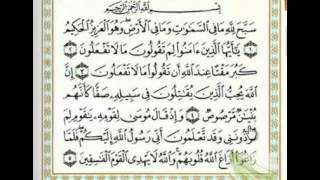 بِسْمِ اللَّهِ الرَّحْمَٰنِ الرَّحِيمِ
سَبَّحَ لِلَّهِ مَا فِي السَّمَٰوَٰتِ وَمَا فِي الْأَرْضِ وَهُوَ الْعَزِيزُ الْحَكِيمُ
١ يَٰٓأَيُّهَا الَّذِينَ ءَامَنُوا لِمَ تَقُولُونَ مَا لَا تَفْعَلُونَ ٢
كَبُرَ مَقْتًا عِندَ اللَّهِ أَن تَقُولُوا مَا لَا تَفْعَلُونَ ٣ إِنَّ
اللَّهَ يُحِبُّ الَّذِينَ يُقَٰتِلُونَ فِي سَبِيلِهِ صَفًّا كَأَنَّهُم
بُنْيَٰنٌ مَّرْصُوصٌ ٤ وَإِذْ قَالَ مُوسَىٰ لِقَوْمِهِ يَٰقَوْمِ لِمَ
تُؤْذُونَنِي وَقَد تَّعْلَمُونَ أَنِّي رَسُولُ اللَّهِ إِلَيْكُمْ فَلَمَّا
زَاغُوا أَزَاغَ اللَّهُ قُلُوبَهُمْ وَاللَّهُ لَا يَهْدِي الْقَوْمَ الْفَٰسِقِينَ ٥